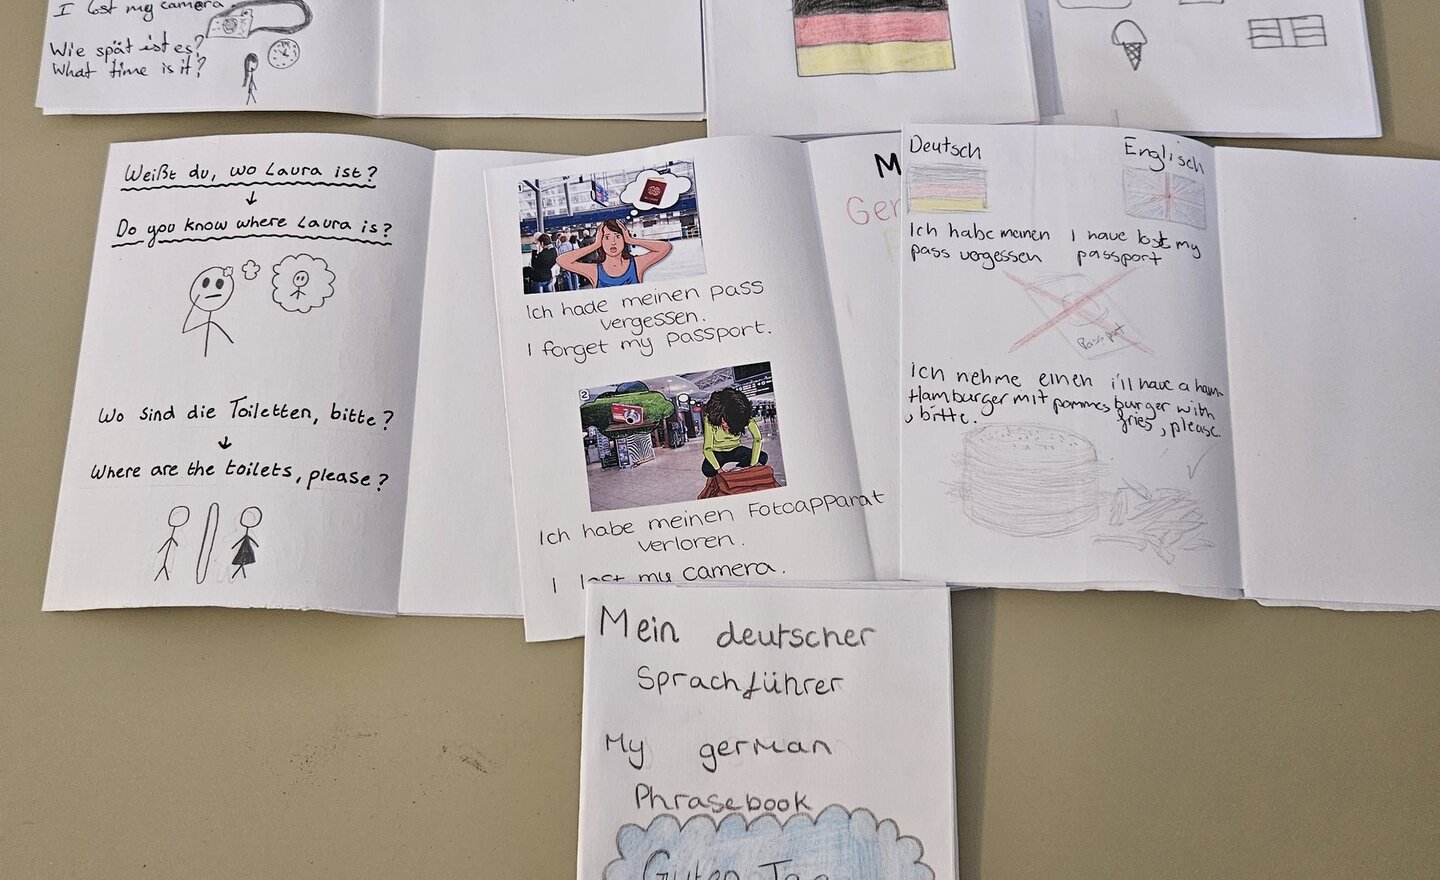 I lost my camera
Wie spät ist es?
What time is it?
Weißt du, wo Laura ist?
Do you know where Laura is?
Wo sind die Toiletten, bitte?
Where are the toilets, please?
1
Ich hade meinen pass
vergessen.
I forget my passport.
2
Ich habe meinen Fotoapparat
verloren.
I lost my camera.
M
Ger
Deutsch
Englisch
Ich habe meinen
pass vergessen
I have lost my
passport
Passport
Ich nehme einen
Hamburger mit pommes
, bitte.
i'll have a ham-
burger with
fries, please.
Mein deutscher
Sprachführer
My german
Phrasebook
Guten Tag